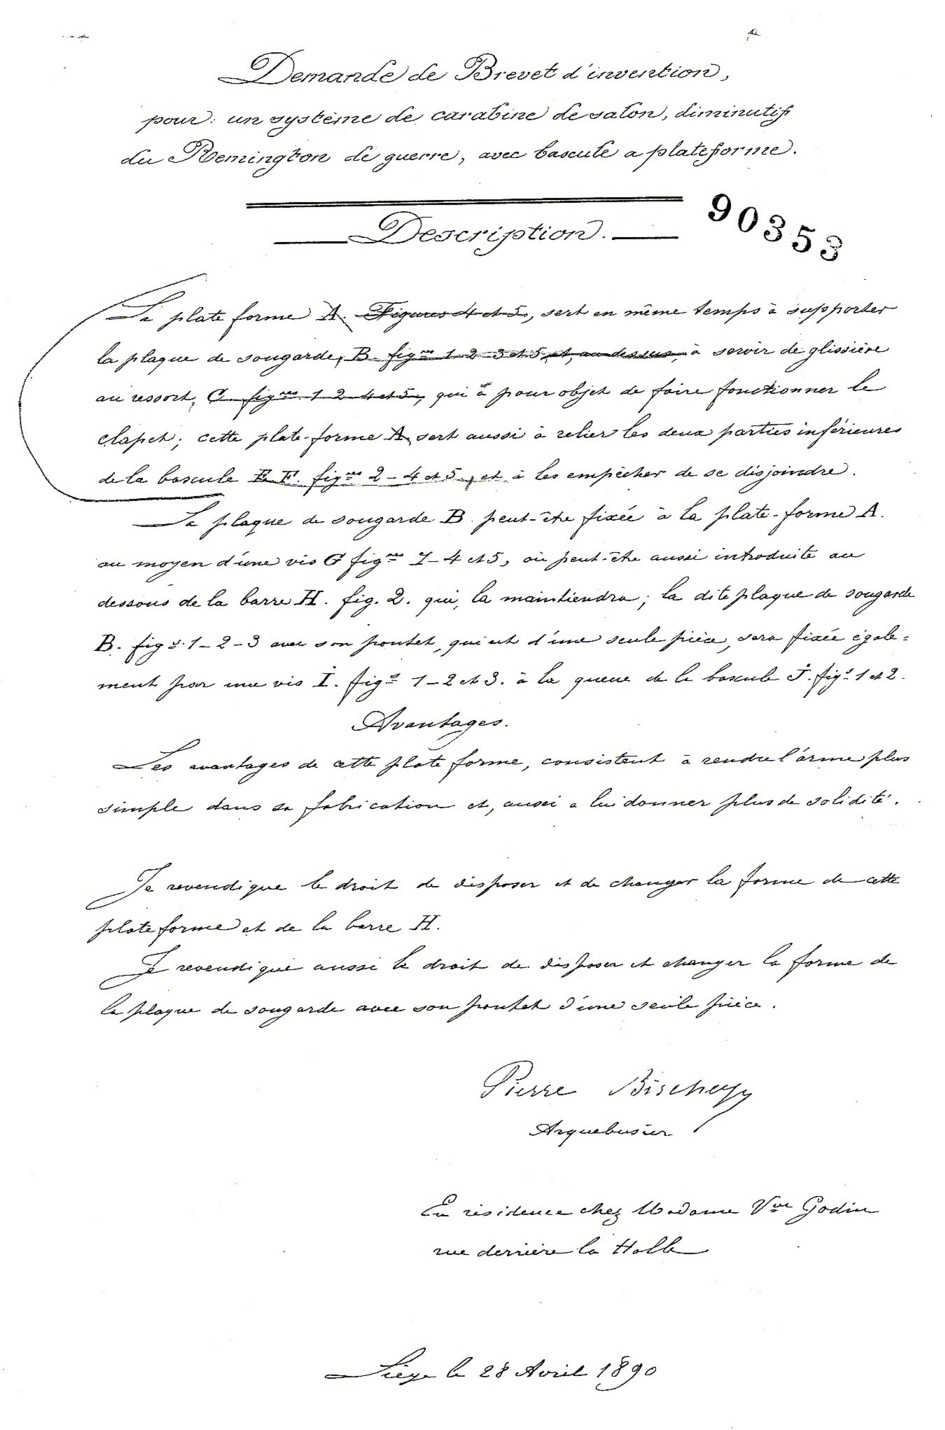 Demande de Brevet d'invention,
pour: un système de carabine de salon, diminutif
du Remington de guerre, avec bascule a plateforme.
90353
Description.
La plate forme A. Figures 4 et 5, sert en même temps à supporter
la plaque de sougarde, B. figres 1-2-3 et 5, et, au dessus, à servir de glissière
au ressort, C figres 1 2-4 et 5, qui à pour objet de faire fonctionner le
clapet; cette plate-forme A, sert aussi à relier les deux parties inférieures
de la bascule E F. figres 2-4 et 5, et à les empêcher de se disjoindre.
La plaque de sougarde B peut-être fixée à la plate-forme A.
au moyen d'une vis G figres 1-4 et 5, où peut-être aussi introduite au
dessous de la barre H. fig. 2. qui, la maintiendra; la dite plaque de sougarde
B. figs. 1-2-3 avec son pontet, qui est d'une seule pièce, sera fixée égale=
ment par une vis I. figs 1-2 et 3. à la queue de la bascule J. figs 1 et 2.
Avantages.
Les avantages de cette plate forme, consistent à rendre l'arme plus
simple dans sa fabrication et, aussi a lui donner plus de solidité.
Je revendique le droit de disposer et de changer la forme de cette
plate forme et de la barre H.
Je revendique aussi le droit de disposer et changer la forme de
la plaque de sougarde avec son pontet d'une seule pièce.
Pierre
Arquebusier
En résidence chez Madame Vve Godin
rue derrière la Halle
Liège le 28 Avril 1890